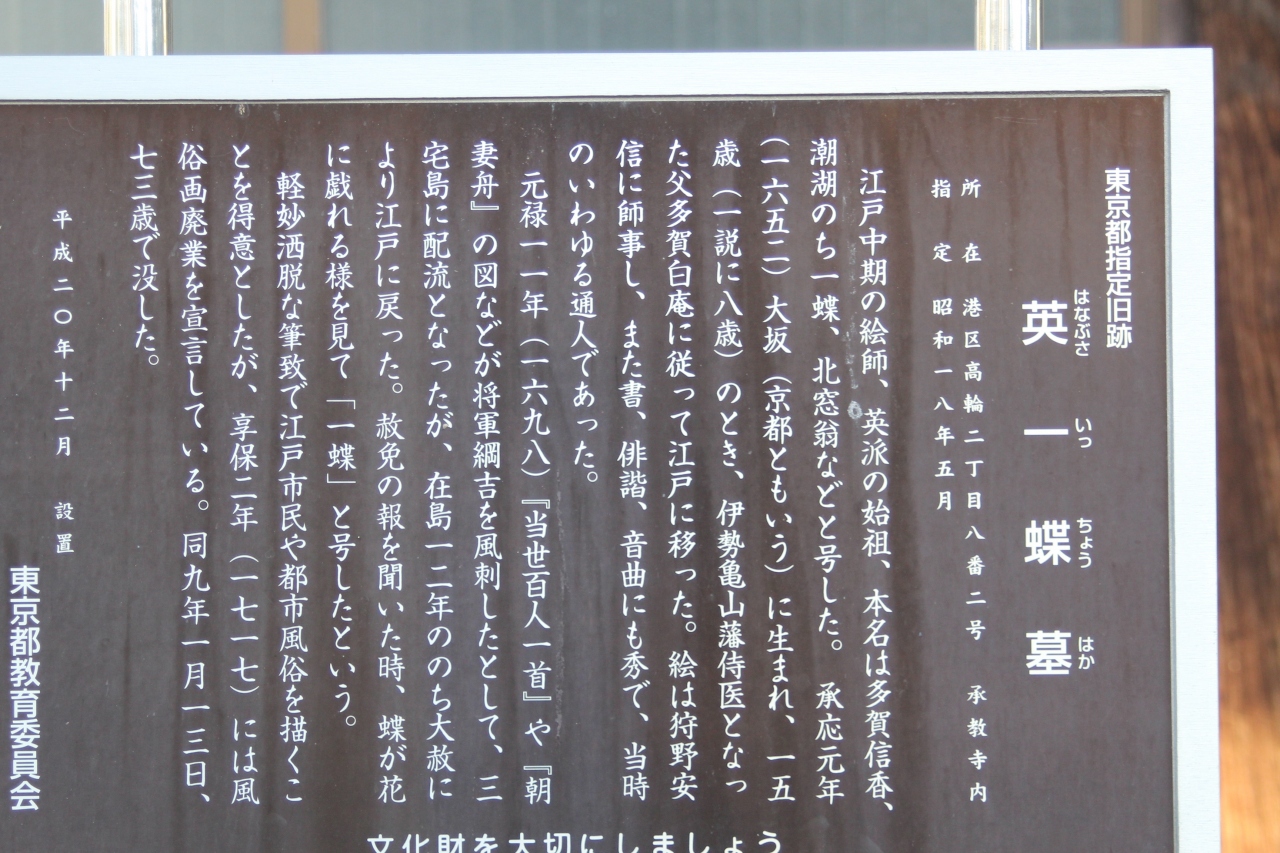 東京都指定旧跡
英一蝶墓
はなぶさ いっ ちょう はか
所在 港区高輪二丁目八番二号 承教寺内
指定 昭和一八年五月
江戸中期の絵師、英派の始祖、本名は多賀信香、
潮湖のち一蝶、北窓翁などと号した。承応元年
(一六五二)大坂(京都ともいう)に生まれ、一五
歳(一説に八歳)のとき、伊勢亀山藩侍医となっ
た父多賀白庵に従って江戸に移った。絵は狩野安
信に師事し、また書、俳諧、音曲にも秀で、当時
のいわゆる通人であった。
元禄一一年(一六九八)『当世百人一首』や『朝
妻舟』の図などが将軍綱吉を風刺したとして、三
宅島に配流となったが、在島一二年ののち大赦に
より江戸に戻った。赦免の報を聞いた時、蝶が花
に戯れる様を見て「一蝶」と号したという。
軽妙洒脱な筆致で江戸市民や都市風俗を描くこ
とを得意としたが、享保二年(一七一七)には風
俗画廃業を宣言している。同九年一月一三日、
七三歳で没した。
平成二〇年十二月 設置
東京都教育委員会
文化財を大切にしましょう